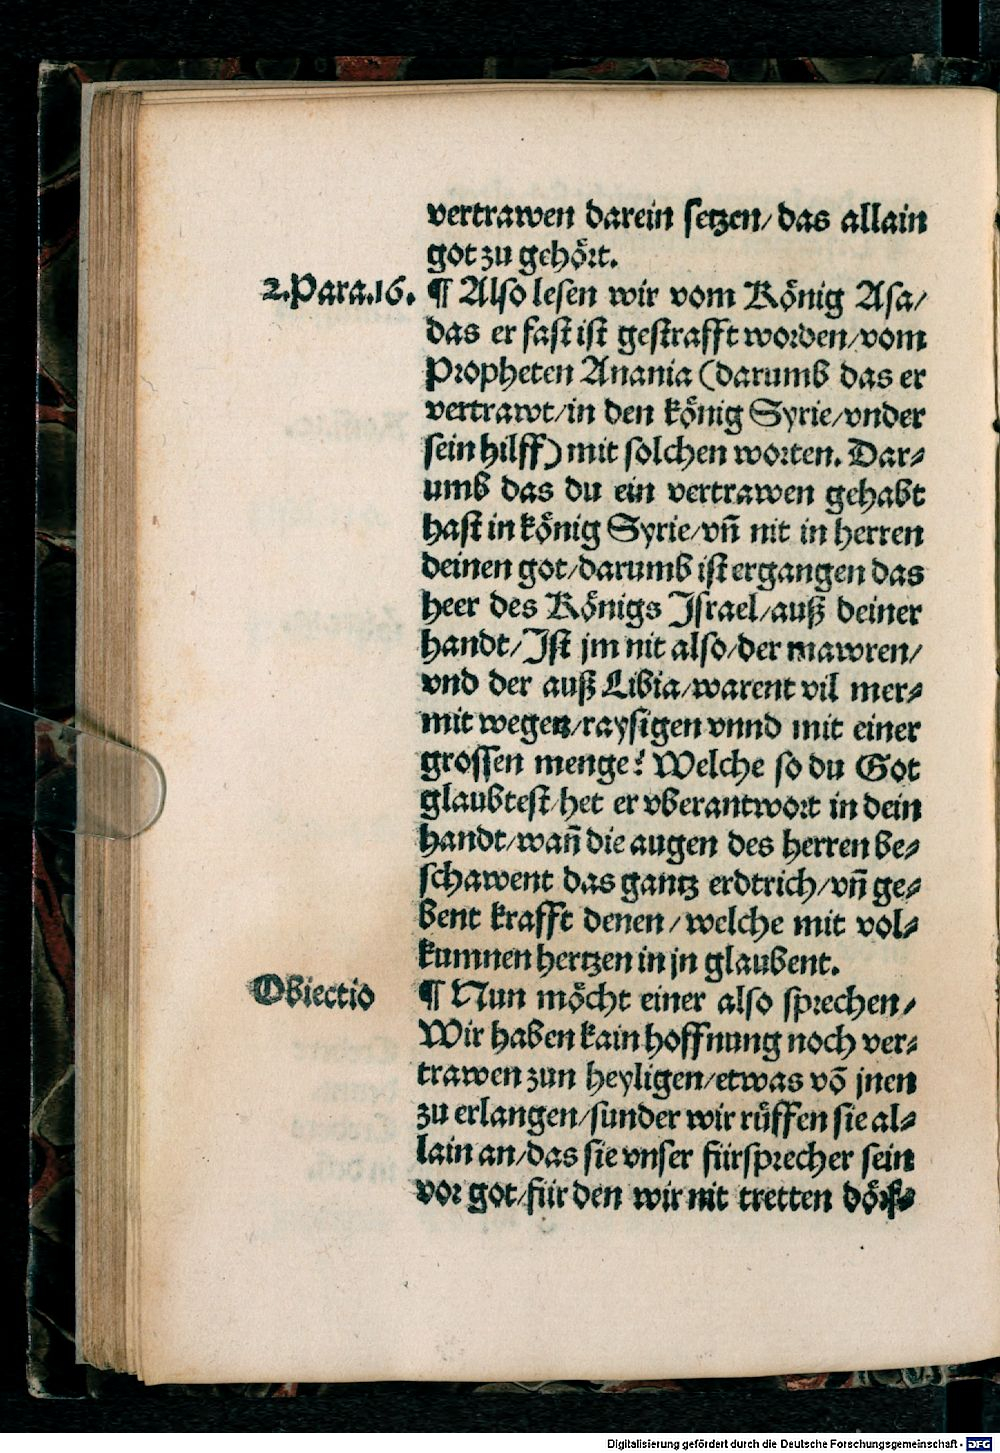 vertrawen darein setzen/das allain
got zu gehört.
2.Para.16. ¶ Also lesen wir vom König Asa/
das er fast ist gestrafft worden/vom
Propheten Anania (darumb das er
vertrawt/in den könig Syrie/vnder
sein hilff) mit solchen worten. Dar⸗
umb das du ein vertrawen gehabt
hast in könig Syrie/vñ nit in herren
deinen got/darumb ist ergangen das
heer des Königs Israel/auß deiner
handt/Ist jm nit also/der mawren/
vnd der auß Libia/warent vil mer⸗
mit wegen/raysigen vnnd mit einer
grossen menge? Welche so du Got
glaubtest/het er vberantwort in dein
handt/wañ die augen des herren be⸗
schawent das gantz erdtrich/vñ ge⸗
bent krafft denen/welche mit vol⸗
kumnen hertzen in jn glaubent.
Obiectio ¶ Nun möcht einer also sprechen/
Wir haben kain hoffnung noch ver⸗
trawen zun heyligen/etwas võ jnen
zu erlangen/sunder wir růffen sie al⸗
lain an/das sie vnser fürsprecher sein
vor got/für den wir nit tretten dörf⸗
Digitalisierung gefördert durch die Deutsche Forschungsgemeinschaft - DFG